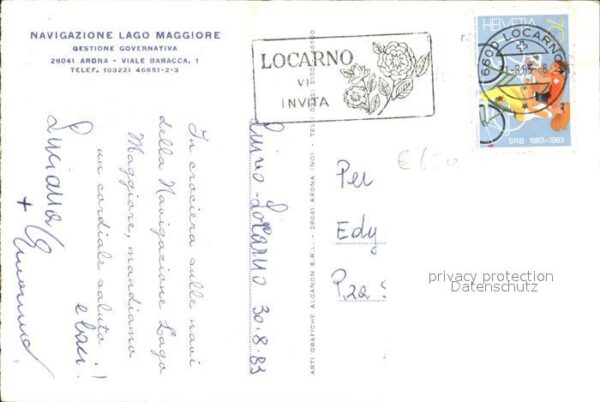 NAVIGAZIONE LAGO MAGGIORE
GESTIONE GOVERNATIVA
28041 ARONA - VIALE BARACCA, 1
TELEF. (0322) 46651-2-3
LOCARNO
VI
INVITA
HELVETIA 70
6600 LOCARNO
SRB 1883-1983
In crociera sulle navi
della Navigazione Lago
Maggiore, mandiamo
un cordiale saluto
e baci!
Luciana
+
Luino-Locarno 30.8.83
ARTI GRAFICHE ALGANON S.R.L. - 28041 ARONA (NO)
Per
Edy
privacy protection
Datenschutz